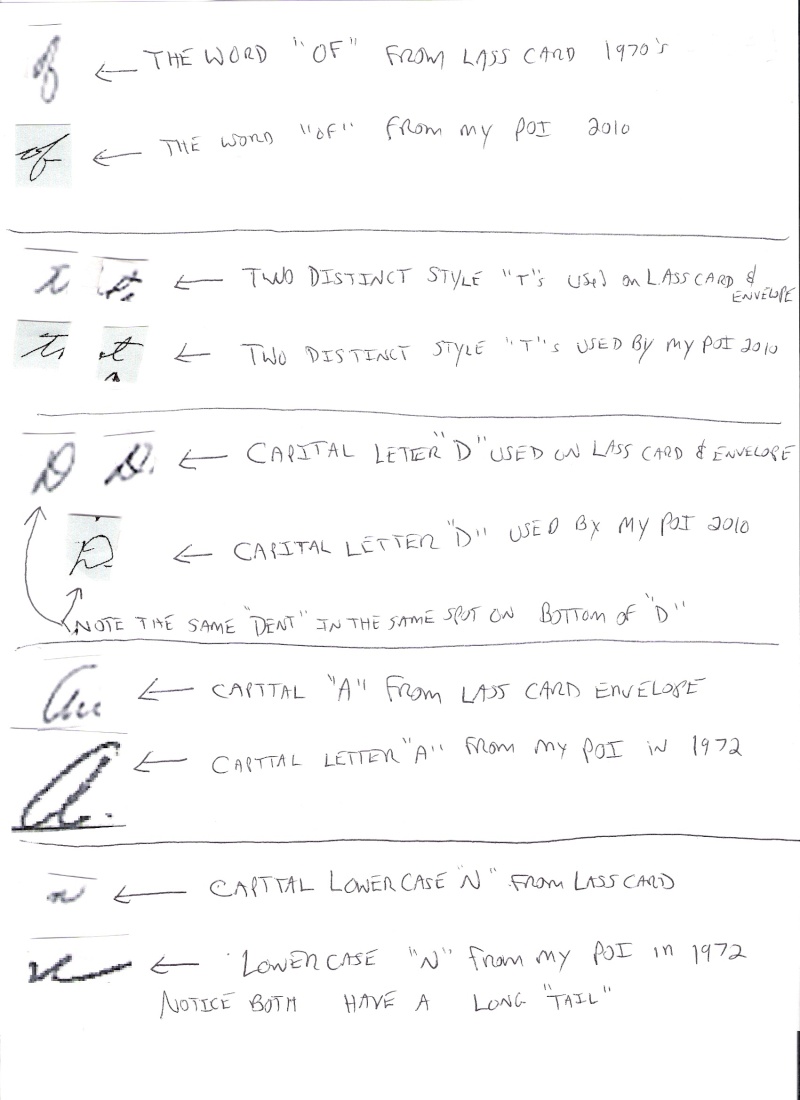 of ← THE WORD "OF" FROM LASS CARD 1970's
of ← THE WORD "OF" FROM MY POI 2010
t t ← TWO DISTINCT STYLE "T"s USED ON LASS CARD &
ENVELOPE
t t ← TWO DISTINCT STYLE "T"s USED BY MY POI 2010
D D. ← CAPITAL LETTER "D" USED ON LASS CARD & ENVELOPE
D ← CAPITAL LETTER "D" USED BY MY POI 2010
NOTE THE SAME "DENT" IN THE SAME SPOT ON BOTTOM OF "D"
← CAPTTAL "A" FROM LASS CARD ENVELOPE
a. ← CAPTTAL LETTER "A" FROM MY POI IN 1972
n ← CAPTTAL LOWERCASE "N" FROM LASS CARD
n ← LOWERCASE "N" FROM MY POI IN 1972
NOTICE BOTH HAVE A LONG "TAIL"